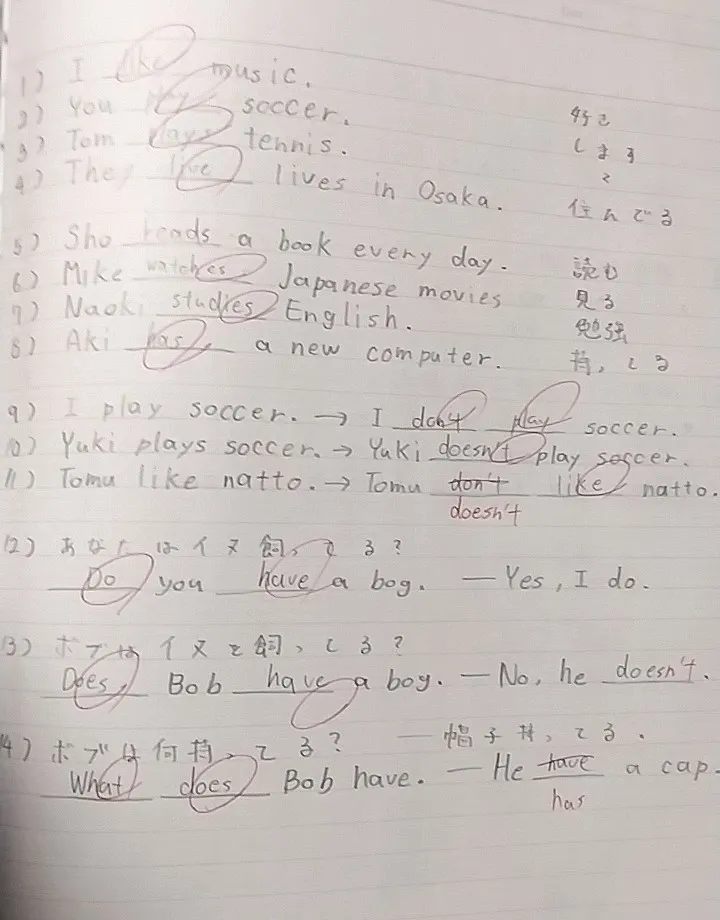 1) I like music.
2) You play soccer. 好き
3) Tom plays tennis. します
4) They live lives in Osaka. 住んでる
5) Sho reads a book every day. 読む
6) Mike watches Japanese movies 見る
7) Naoki studies English. 勉強
8) Aki has a new computer. 持ってる
9) I play soccer. → I don't play soccer.
10) Yuki plays soccer. → Yuki doesn't play soccer.
11) Tomu like natto. → Tomu don't like natto.
doesn't
12) あなたはイヌ飼ってる?
Do you have a bog. — Yes, I do.
13) ボブはイヌを飼ってる?
Does Bob have a boy. — No, he doesn't.
14) ボブは何持ってる? — 帽子持ってる.
What does Bob have. — He have a cap.
has